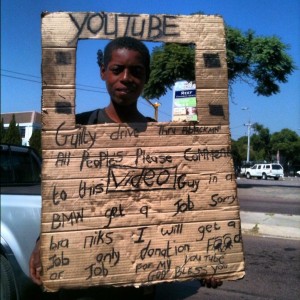 YOUTUBE
Guilty drive thru
All Peoples Please Comment
to this Video! Guy in a
BMW get a Job Sorry
bra niks I will get a
Job only donation Food
or Job For My YouTube
GOD BLESS YOU